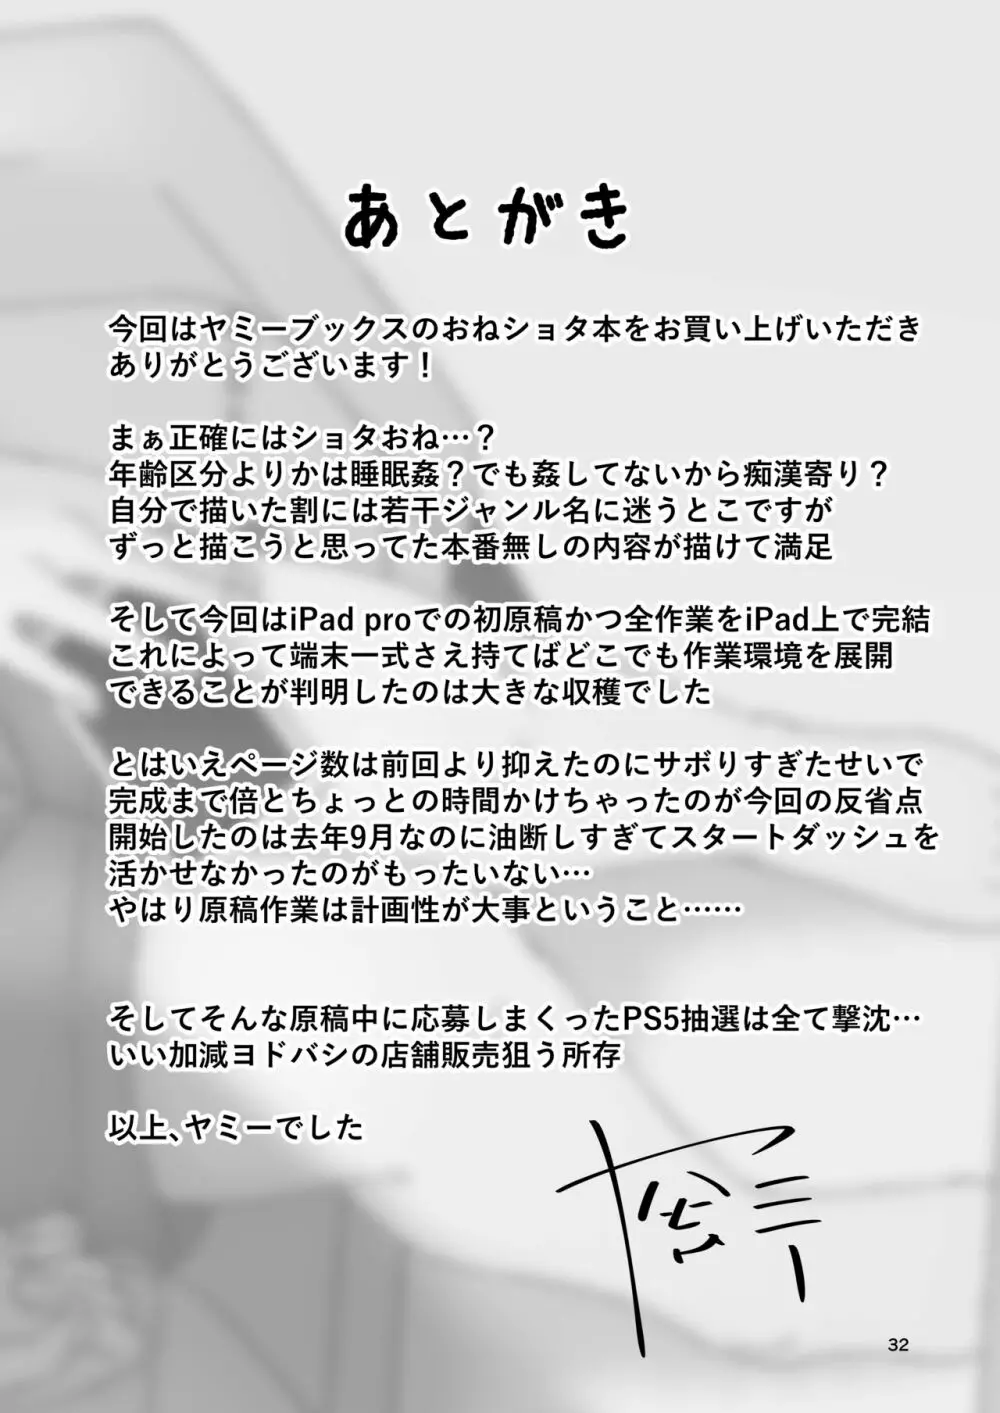 あとがき
今回はヤミーブックスのおねショタ本をお買い上げいただき
ありがとうございます！
まぁ正確にはショタおね…？
年齢区分よりかは睡眠姦？でも姦してないから痴漢寄り？
自分で描いた割には若干ジャンル名に迷うとこですが
ずっと描こうと思ってた本番無しの内容が描けて満足
そして今回はiPad proでの初原稿かつ全作業をiPad上で完結
これによって端末一式さえ持てばどこでも作業環境を展開
できることが判明したのは大きな収穫でした
とはいえページ数は前回より抑えたのにサボりすぎたせいで
完成まで倍とちょっとの時間かけちゃったのが今回の反省点
開始したのは去年9月なのに油断しすぎてスタートダッシュを
活かせなかったのがもったいない…
やはり原稿作業は計画性が大事ということ……
そしてそんな原稿中に応募しまくったPS5抽選は全て撃沈…
いい加減ヨドバシの店舗販売狙う所存
以上、ヤミーでした
32